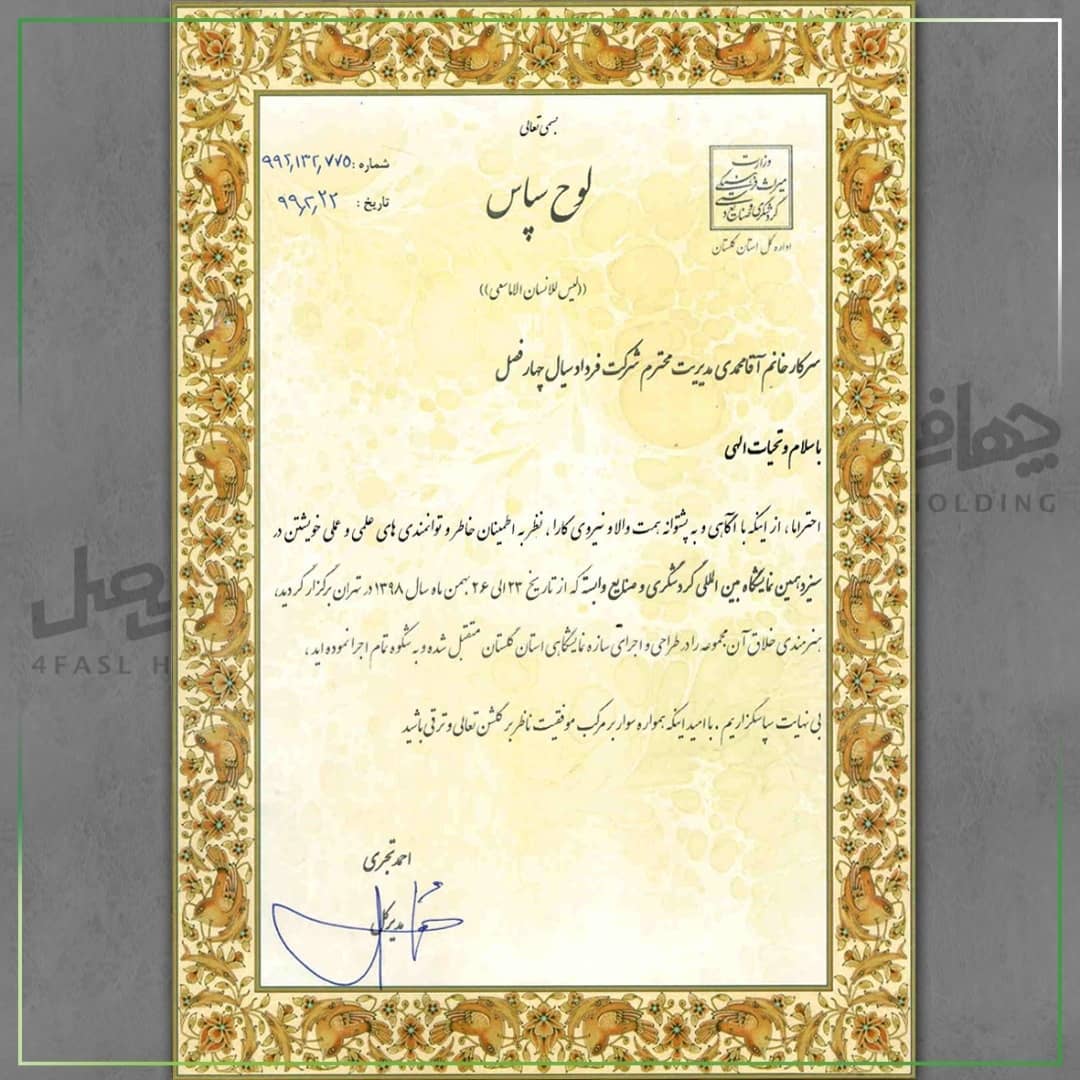 بسمی تعالی
وزارت
میراث فرهنگی
گردشگری و صنایع دستی
اداره کل استان گلستان
شماره: ۹۹۲,۱۳۲,۷۷۵
تاریخ: ۹۹,۲,۲۲
لوح سپاس
((لیس للانسان الا ما سعی))
سرکار خانم آقامحمدی مدیریت محترم شرکت فرداد سیال چهار فصل
با سلام و تحیات الهی
احتراما، از اینکه با آگاهی و به پشتوانه همت والا و نیروی کارا، نظر به اطمینان خاطر و توانمندی های علمی و عملی خویشتن در
سیزدهمین نمایشگاه بین المللی گردشگری و صنایع وابسته که از تاریخ ۲۳ الی ۲۶ بهمن ماه سال ۱۳۹۸ در تهران برگزار گردید،
هنرمندی خلاق آن مجموعه را در طراحی و اجرای سازه نمایشگاهی استان گلستان متقبل شده و به شکوه تمام اجرا نموده اید،
بی نهایت سپاسگزاریم. با امید اینکه همواره سوار بر مرکب موفقیت ناظر بر گلشن تعالی و ترقی باشید
احمد تجری
مدیرکل
4FASL H
HOLDING